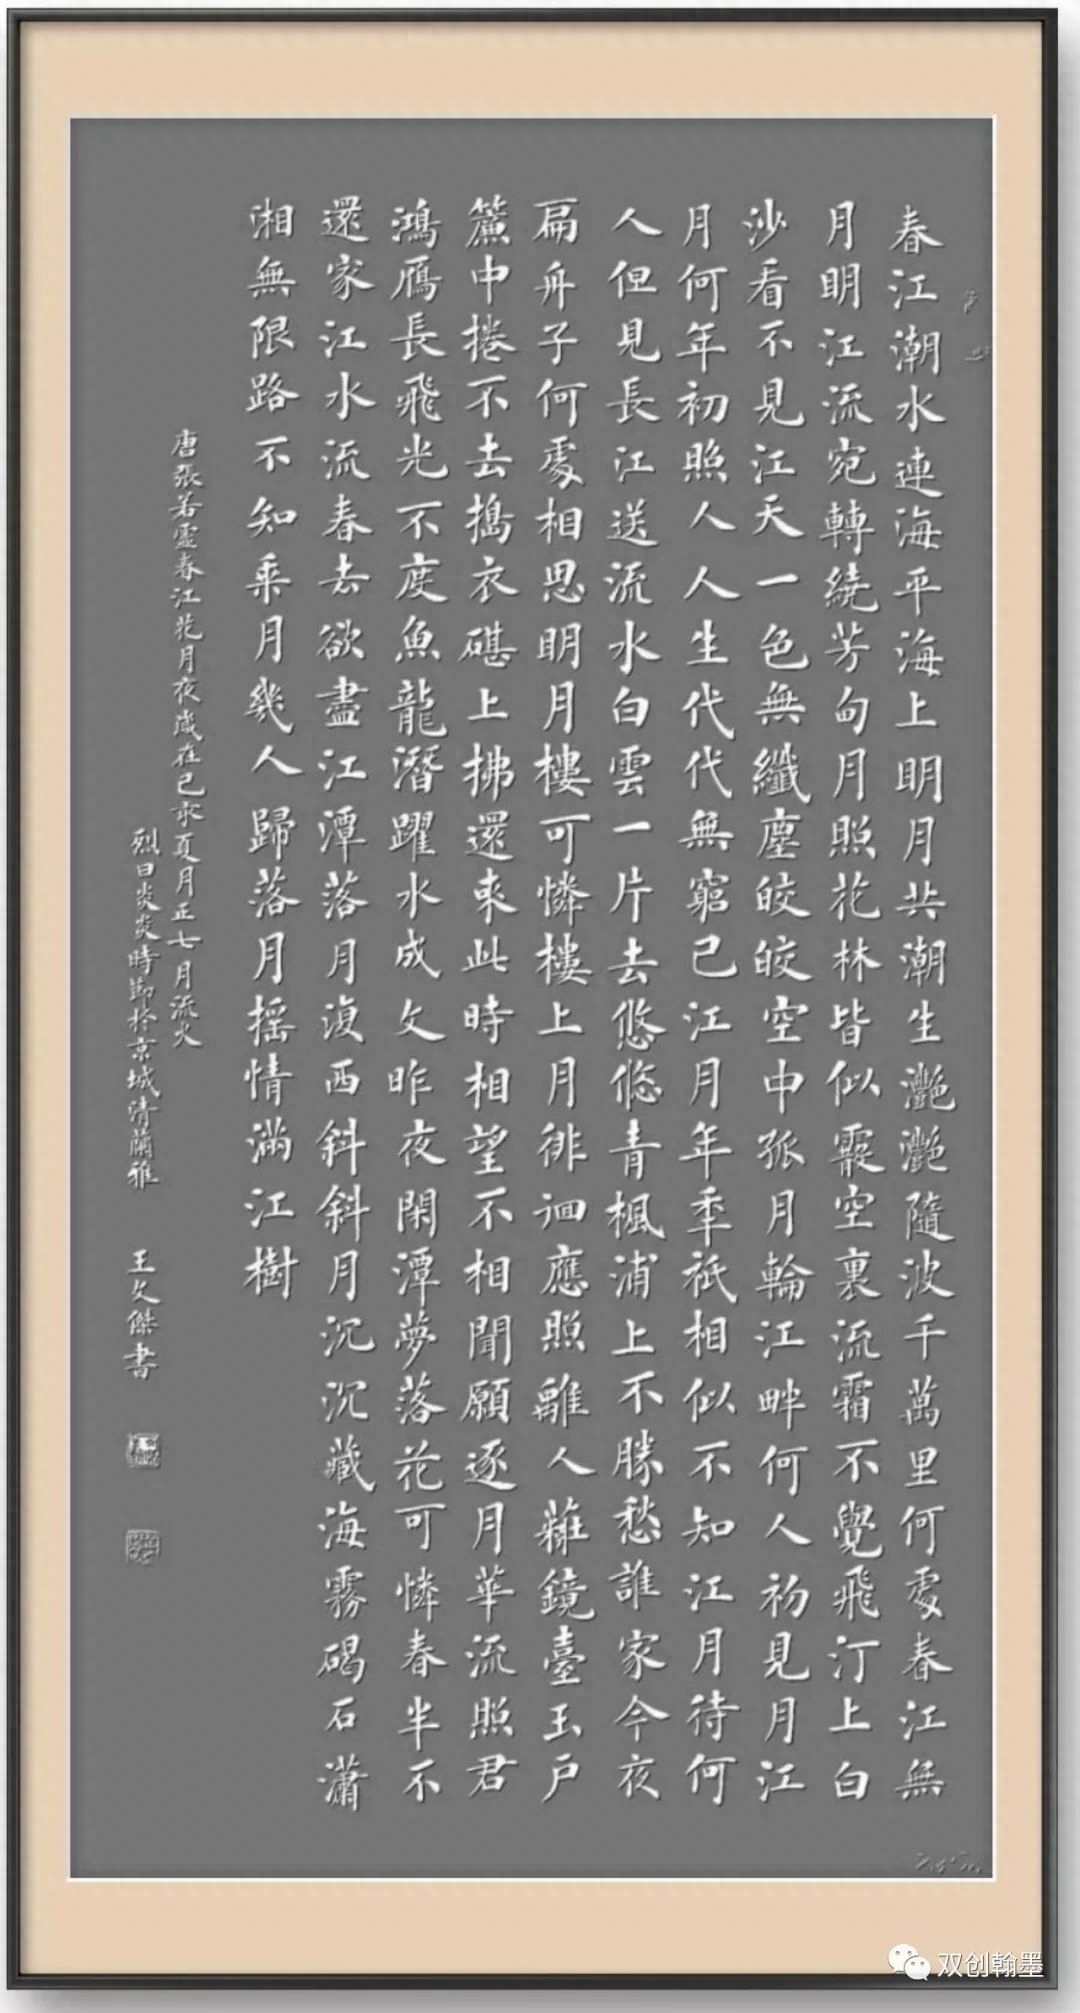 春江潮水連海平海上明月共潮生灧灧隨波千萬里何處春江無
月明江流宛轉繞芳甸月照花林皆似霰空裏流霜不覺飛汀上白
沙看不見江天一色無纖塵皎皎空中孤月輪江畔何人初見月江
月何年初照人人生代代無窮已江月年年祇相似不知江月待何
人但見長江送流水白雲一片去悠悠青楓浦上不勝愁誰家今夜
扁舟子何處相思明月樓可憐樓上月徘徊應照離人粧鏡臺玉戶
簾中捲不去搗衣碪上拂還來此時相望不相聞願逐月華流照君
鴻雁長飛光不度魚龍潛躍水成文昨夜閑潭夢落花可憐春半不
還家江水流春去欲盡江潭落月復西斜斜月沉沉藏海霧碣石瀟
湘無限路不知乘月幾人歸落月搖情滿江樹
唐張若虛春江花月夜歲在己亥夏月正七月流火
烈日炎炎時節於京城清蘭雅 王文傑書
双创翰墨